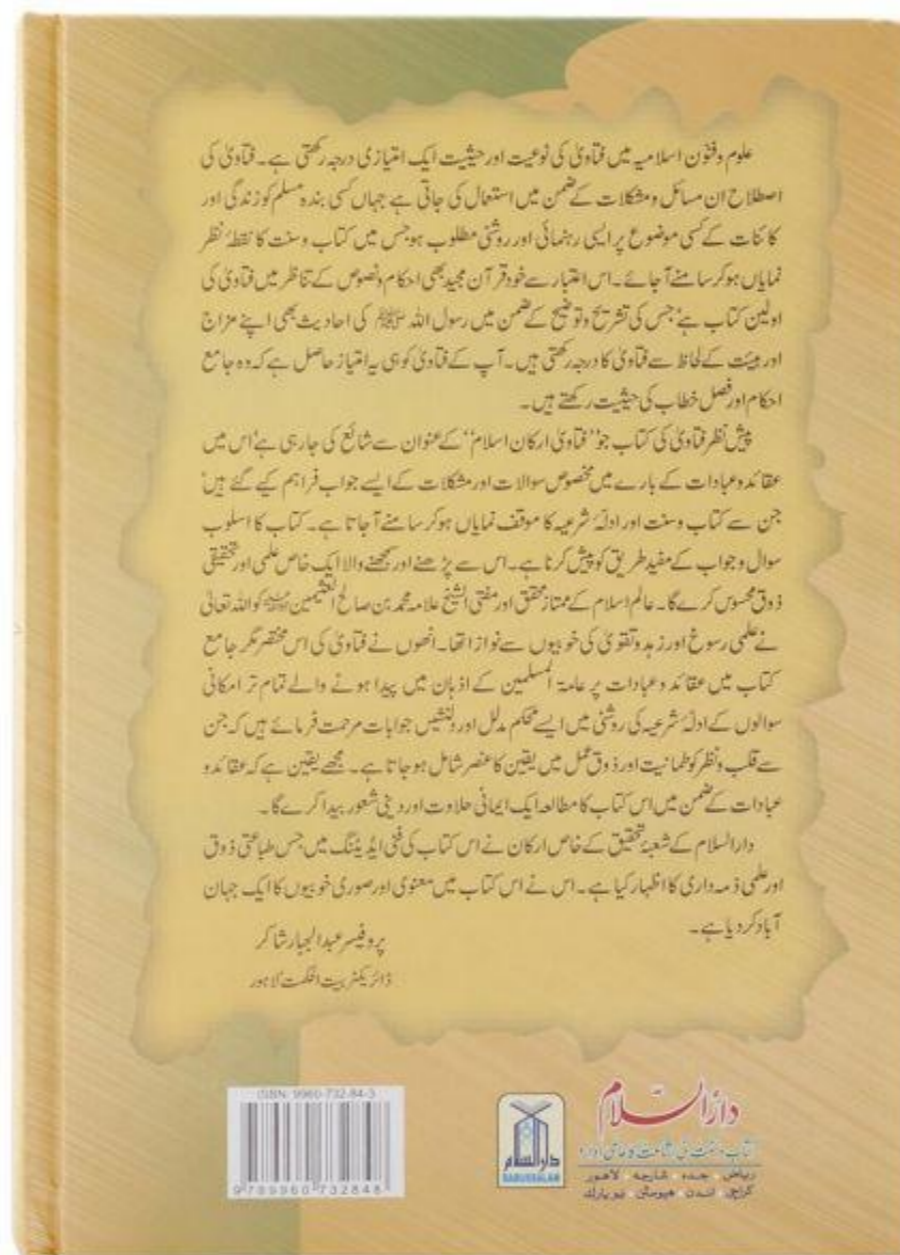 علوم و فنون اسلامیہ میں فتاویٰ کی نوعیت اور حیثیت ایک امتیازی درجہ رکھتی ہے۔ فتاویٰ کی
اصطلاح ان مسائل و مشکلات کے ضمن میں استعمال کی جاتی ہے جہاں کسی بندہ مسلم کو زندگی اور
کائنات کے کسی موضوع پر ایسی رہنمائی اور روشنی مطلوب ہو جس میں کتاب و سنت کا نقطۂ نظر
نمایاں ہو کر سامنے آ جائے۔ اس اعتبار سے خود قرآن مجید بھی احکام و نصوص کے تناظر میں فتاویٰ کی
اولین کتاب ہے' جس کی تشریح و توضیح کے ضمن میں رسول اللہ ﷺ کی احادیث بھی اپنے مزاج
اور ہیئت کے لحاظ سے فتاویٰ کا درجہ رکھتی ہیں۔ آپ کے فتاویٰ کو ہی یہ امتیاز حاصل ہے کہ وہ جامع
احکام اور فصل خطاب کی حیثیت رکھتے ہیں۔
پیش نظر فتاویٰ کی کتاب جو ''فتاویٰ ارکان اسلام'' کے عنوان سے شائع کی جا رہی ہے' اس میں
عقائد و عبادات کے بارے میں مخصوص سوالات اور مشکلات کے ایسے جواب فراہم کیے گئے ہیں'
جن سے کتاب و سنت اور ادلۂ شرعیہ کا موقف نمایاں ہو کر سامنے آ جاتا ہے۔ کتاب کا اسلوب
سوال و جواب کے مفید طریق کو پیش کرنا ہے۔ اس سے پڑھنے اور سمجھنے والا ایک خاص علمی اور تحقیقی
ذوق محسوس کرے گا۔ عالم اسلام کے ممتاز محقق اور مفتی الشیخ علامہ محمد بن صالح العثیمین رحمہ اللہ کو اللہ تعالیٰ
نے علمی رسوخ اور زہد و تقویٰ کی خوبیوں سے نوازا تھا۔ انھوں نے فتاویٰ کی اس مختصر مگر جامع
کتاب میں عقائد و عبادات پر عامۃ المسلمین کے اذہان میں پیدا ہونے والے تمام تر امکانی
سوالوں کے ادلۂ شرعیہ کی روشنی میں ایسے محکم مدلل اور دلنشیں جوابات مرحمت فرمائے ہیں کہ جن
سے قلب و نظر کو طمانیت اور ذوق عمل میں یقین کا عنصر شامل ہو جاتا ہے۔ مجھے یقین ہے کہ عقائد و
عبادات کے ضمن میں اس کتاب کا مطالعہ ایک ایمانی حلاوت اور دینی شعور پیدا کرے گا۔
دارالسلام کے شعبۂ تحقیق کے خاص ارکان نے اس کتاب کی فنی ایڈیٹنگ میں جس طباعتی ذوق
اور علمی ذمہ داری کا اظہار کیا ہے۔ اس نے اس کتاب میں معنوی اور صوری خوبیوں کا ایک جہان
آباد کر دیا ہے۔
پروفیسر عبدالجبار شاکر
ڈائریکٹر بیت الحکمت' لاہور
ISBN: 9960-732-84-3
9 789960 732848
دارالسلام
DARUSSALAM
دارالسلام
کتاب و سنت کی اشاعت کا عالمی ادارہ
ریاض ۰ جدہ ۰ شارجہ ۰ لاہور
کراچی ۰ لندن ۰ ہیوسٹن ۰ نیویارک